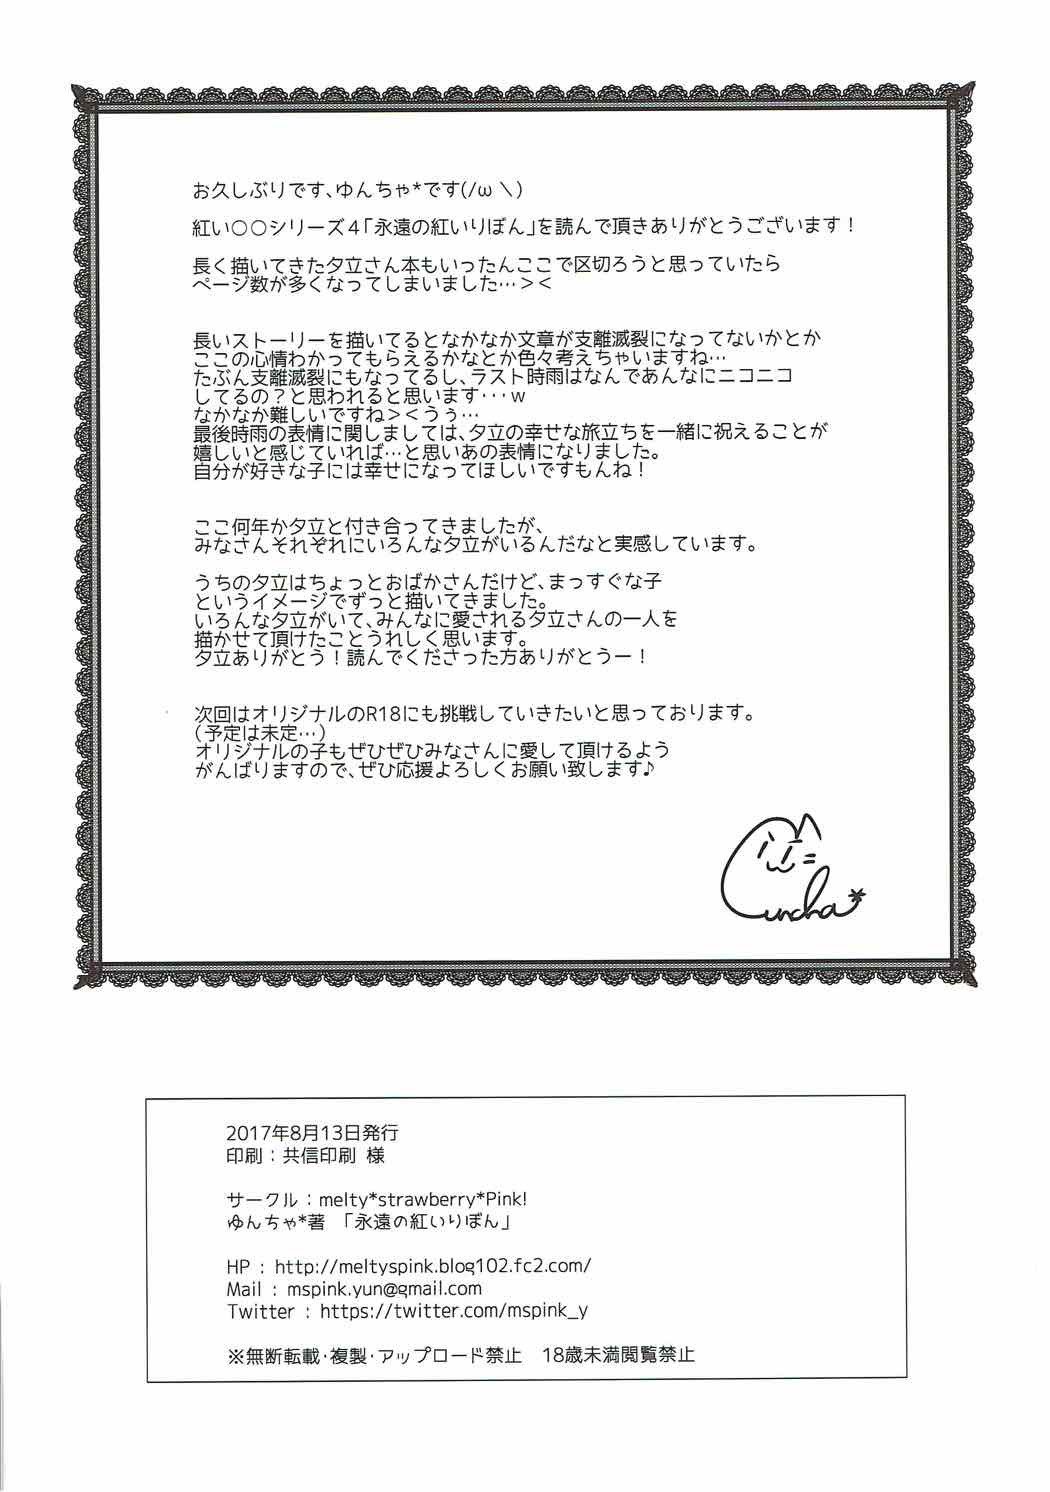 お久しぶりです、ゆんちゃ*です(/ω＼)
紅い○○シリーズ4「永遠の紅いりぼん」を読んで頂きありがとうございます！
長く描いてきた夕立さん本もいったんここで区切ろうと思っていたら
ページ数が多くなってしまいました…＞＜
長いストーリーを描いてるとなかなか文章が支離滅裂になってないかとか
ここの心情わかってもらえるかなとか色々考えちゃいますね…
たぶん支離滅裂にもなってるし、ラスト時雨はなんであんなにニコニコ
してるの？と思われると思います･･･w
なかなか難しいですね＞＜うぅ…
最後時雨の表情に関しましては、夕立の幸せな旅立ちを一緒に祝えることが
嬉しいと感じていれば…と思いあの表情になりました。
自分が好きな子には幸せになってほしいですもんね！
ここ何年か夕立と付き合ってきましたが、
みなさんそれぞれにいろんな夕立がいるんだなと実感しています。
うちの夕立はちょっとおばかさんだけど、まっすぐな子
というイメージでずっと描いてきました。
いろんな夕立がいて、みんなに愛される夕立さんの一人を
描かせて頂けたことうれしく思います。
夕立ありがとう！読んでくださった方ありがとうー！
次回はオリジナルのR18にも挑戦していきたいと思っております。
（予定は未定…）
オリジナルの子もぜひぜひみなさんに愛して頂けるよう
がんばりますので、ぜひ応援よろしくお願い致します♪
uncha*
2017年8月13日発行
印刷：共信印刷 様
サークル：melty*strawberry*Pink!
ゆんちゃ*著 「永遠の紅いりぼん」
HP : http://meltyspink.blog102.fc2.com/
Mail : mspink.yun@gmail.com
Twitter : https://twitter.com/mspink_y
※無断転載･複製･アップロード禁止　18歳未満閲覧禁止